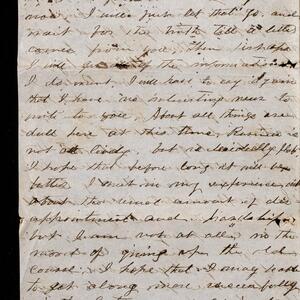 now. I will just let that go, and
wait for the truth till a letter
comes from you, then perhaps
I will get
I do want. I will have to say again
that I have no interesting news to
write to you. Most all things are
dull here at this time. Business is
not all
I hope that before long it will be
better. I meet in my experience
about the usual amount of dis
appointment and hardship
but I am not at all in the
mood of giving up the old
course. I hope that I may
to get along more successfully